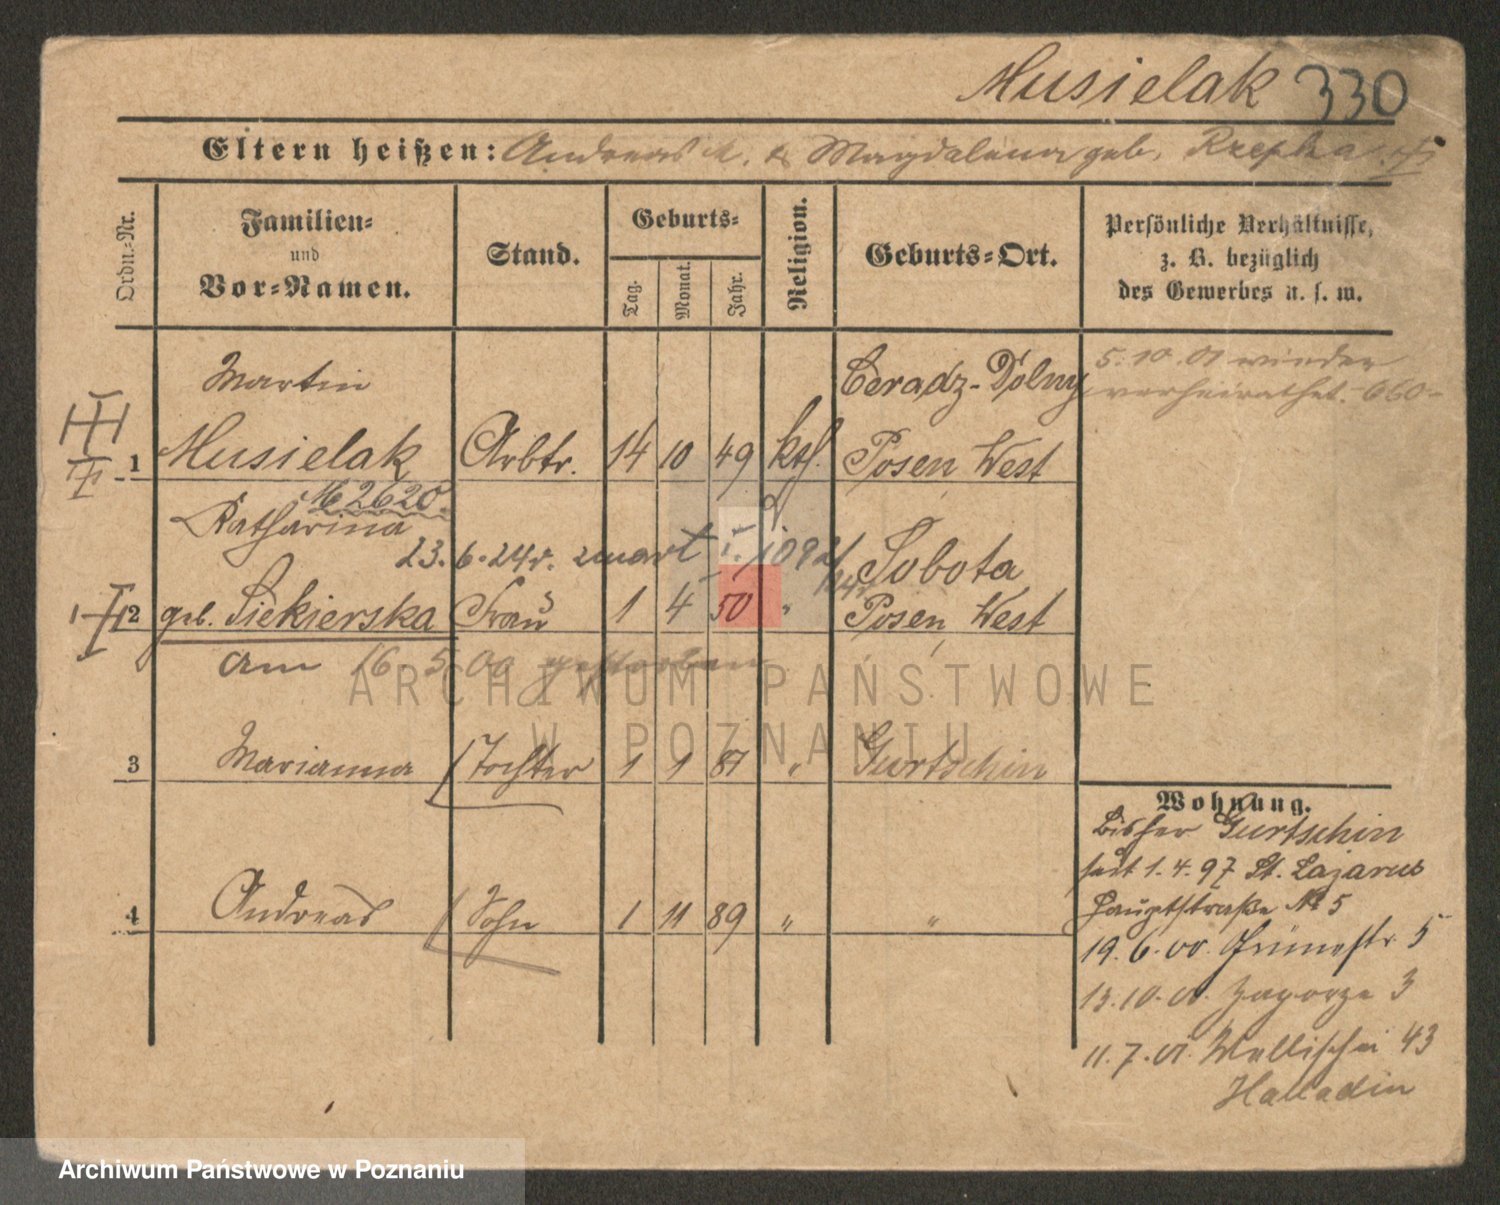 Musielak 330
Eltern heißen: Andreas M. & Magdalena geb. Rzepka
Ordn.-Nr.
Familien-
und
Vor-Namen.
Stand.
Geburts-
Tag.
Monat.
Jahr.
Religion.
Geburts-Ort.
Persönliche Verhältnisse,
z. B. bezüglich
des Gewerbes u. s. w.
Martin Ceradz-Dolny 5.10.01 wieder
verheirathet. 660-
1 Musielak Arbtr. 14 10 49 kth. Posen West
№ 2620
Katharina Sobota
23.6.24r. zmarł 1092/
24r
2 geb. Siekierska Frau 1 4 50 " Posen West
am 16.5.00 gestorben
3 Marianna Tochter 1 1 87 " Gurtschin
4 Andreas Sohn 1 11 89 " "
Wohnung.
bisher Gurtschin
seit 1.4.97 St. Lazarus
Hauptstraße № 5
19.6.00. Grünestr 5
13.10.00. Zagorze 3
11.7.01. Wallischei 43
Halladin
ARCHIWUM PAŃSTWOWE
W POZNANIU
Archiwum Państwowe w Poznaniu